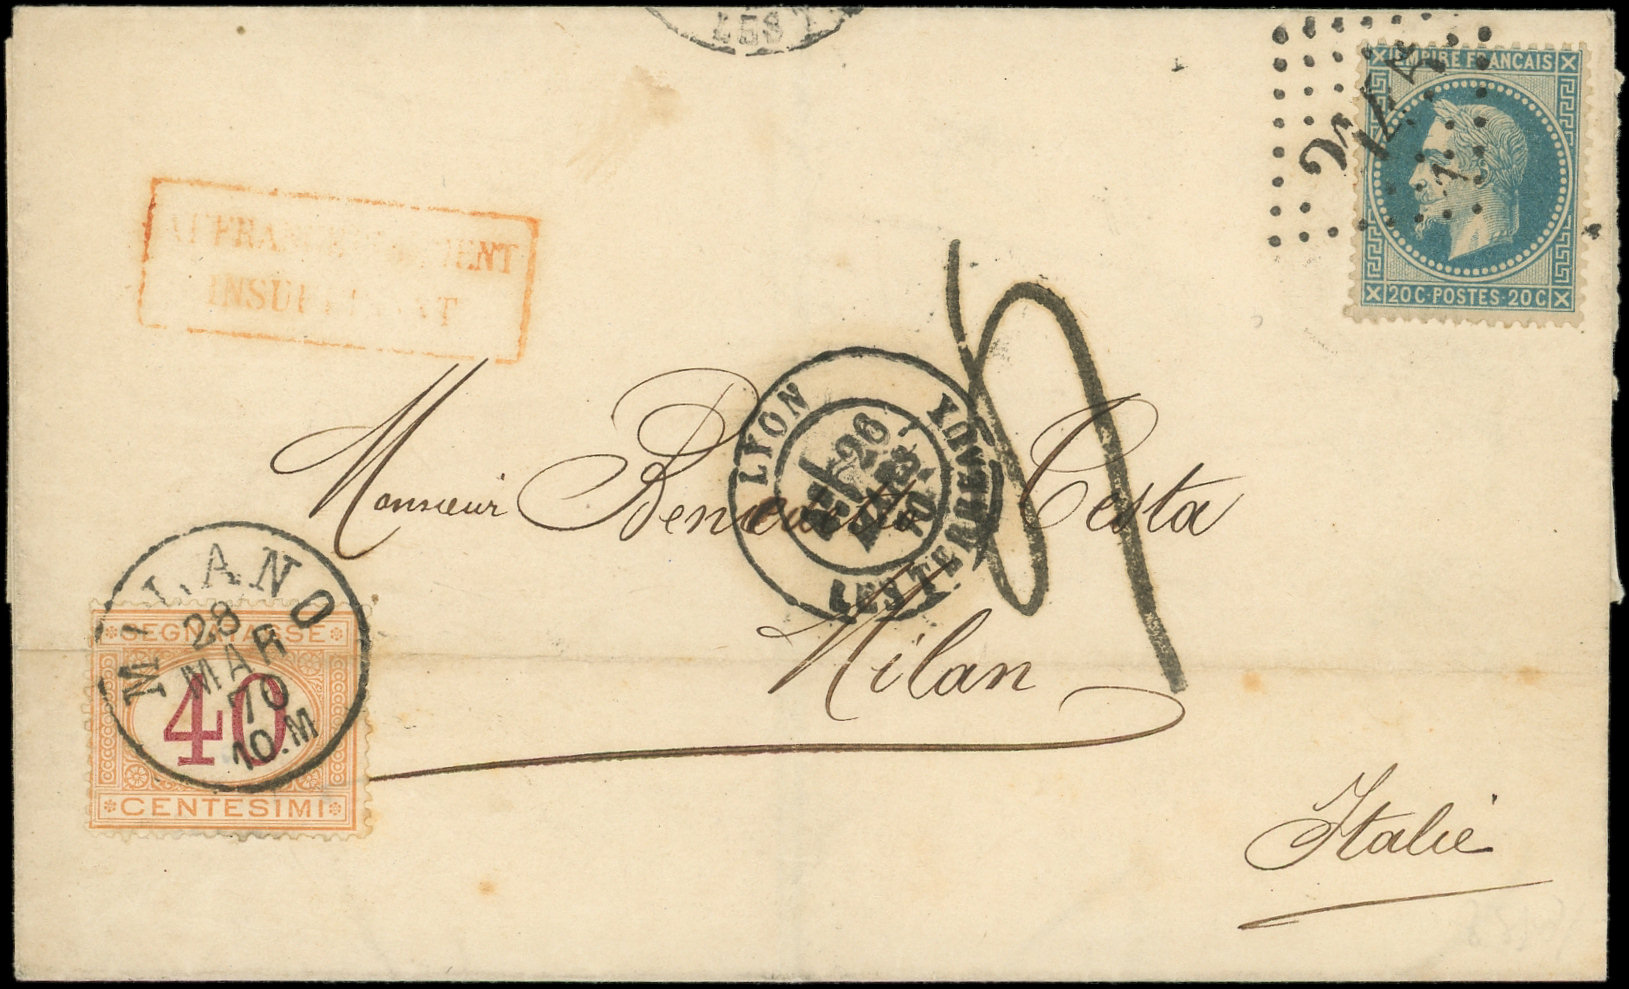 LES T
EMPIRE FRANÇAIS
2145
2
20C·POSTES·20C
AFFRANCHISSEMENT
INSUFFISANT
LYON
LES TERREAUX
26
MARS
70
Monsieur Benedetto Testa
Milan
Italie
MILANO
28
MAR
70
10.M
SEGNATASSE
40
CENTESIMI